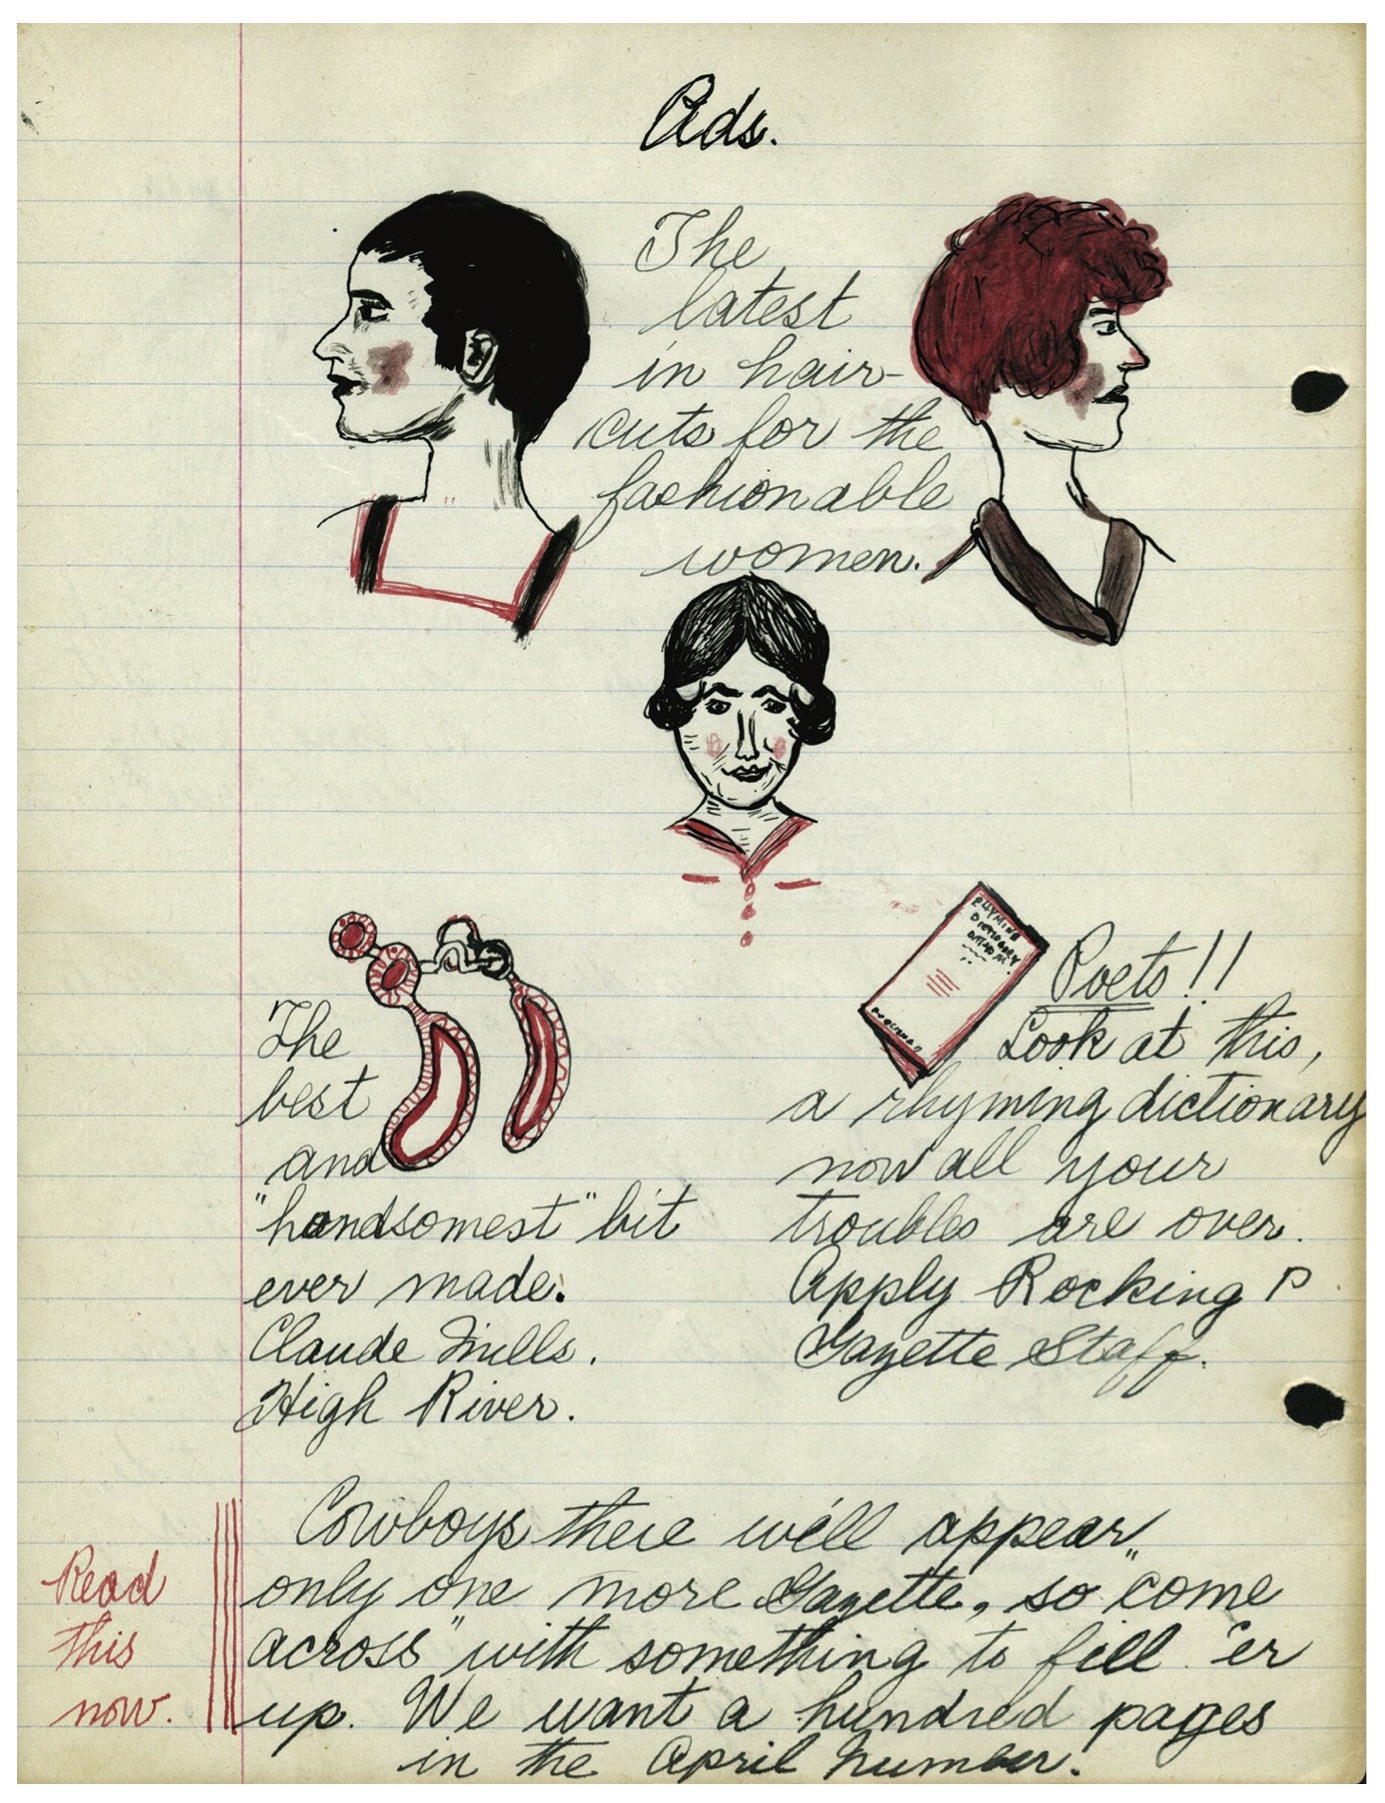 Ads.
The
latest
in hair-
cuts for the
fashionable
women.
RHYMING
DICTIONARY
The
best
and
"handsomest" bit
ever made.
Claude Mills.
High River.
Poets!!
Look at this,
a rhyming dictionary
now all your
troubles are over.
Apply Rocking P
Gazette Staff.
Read
this
now.
Cowboys there we'll appear
only one more Gazette, so "come
across" with something to fill 'er
up. We want a hundred pages
in the April number.